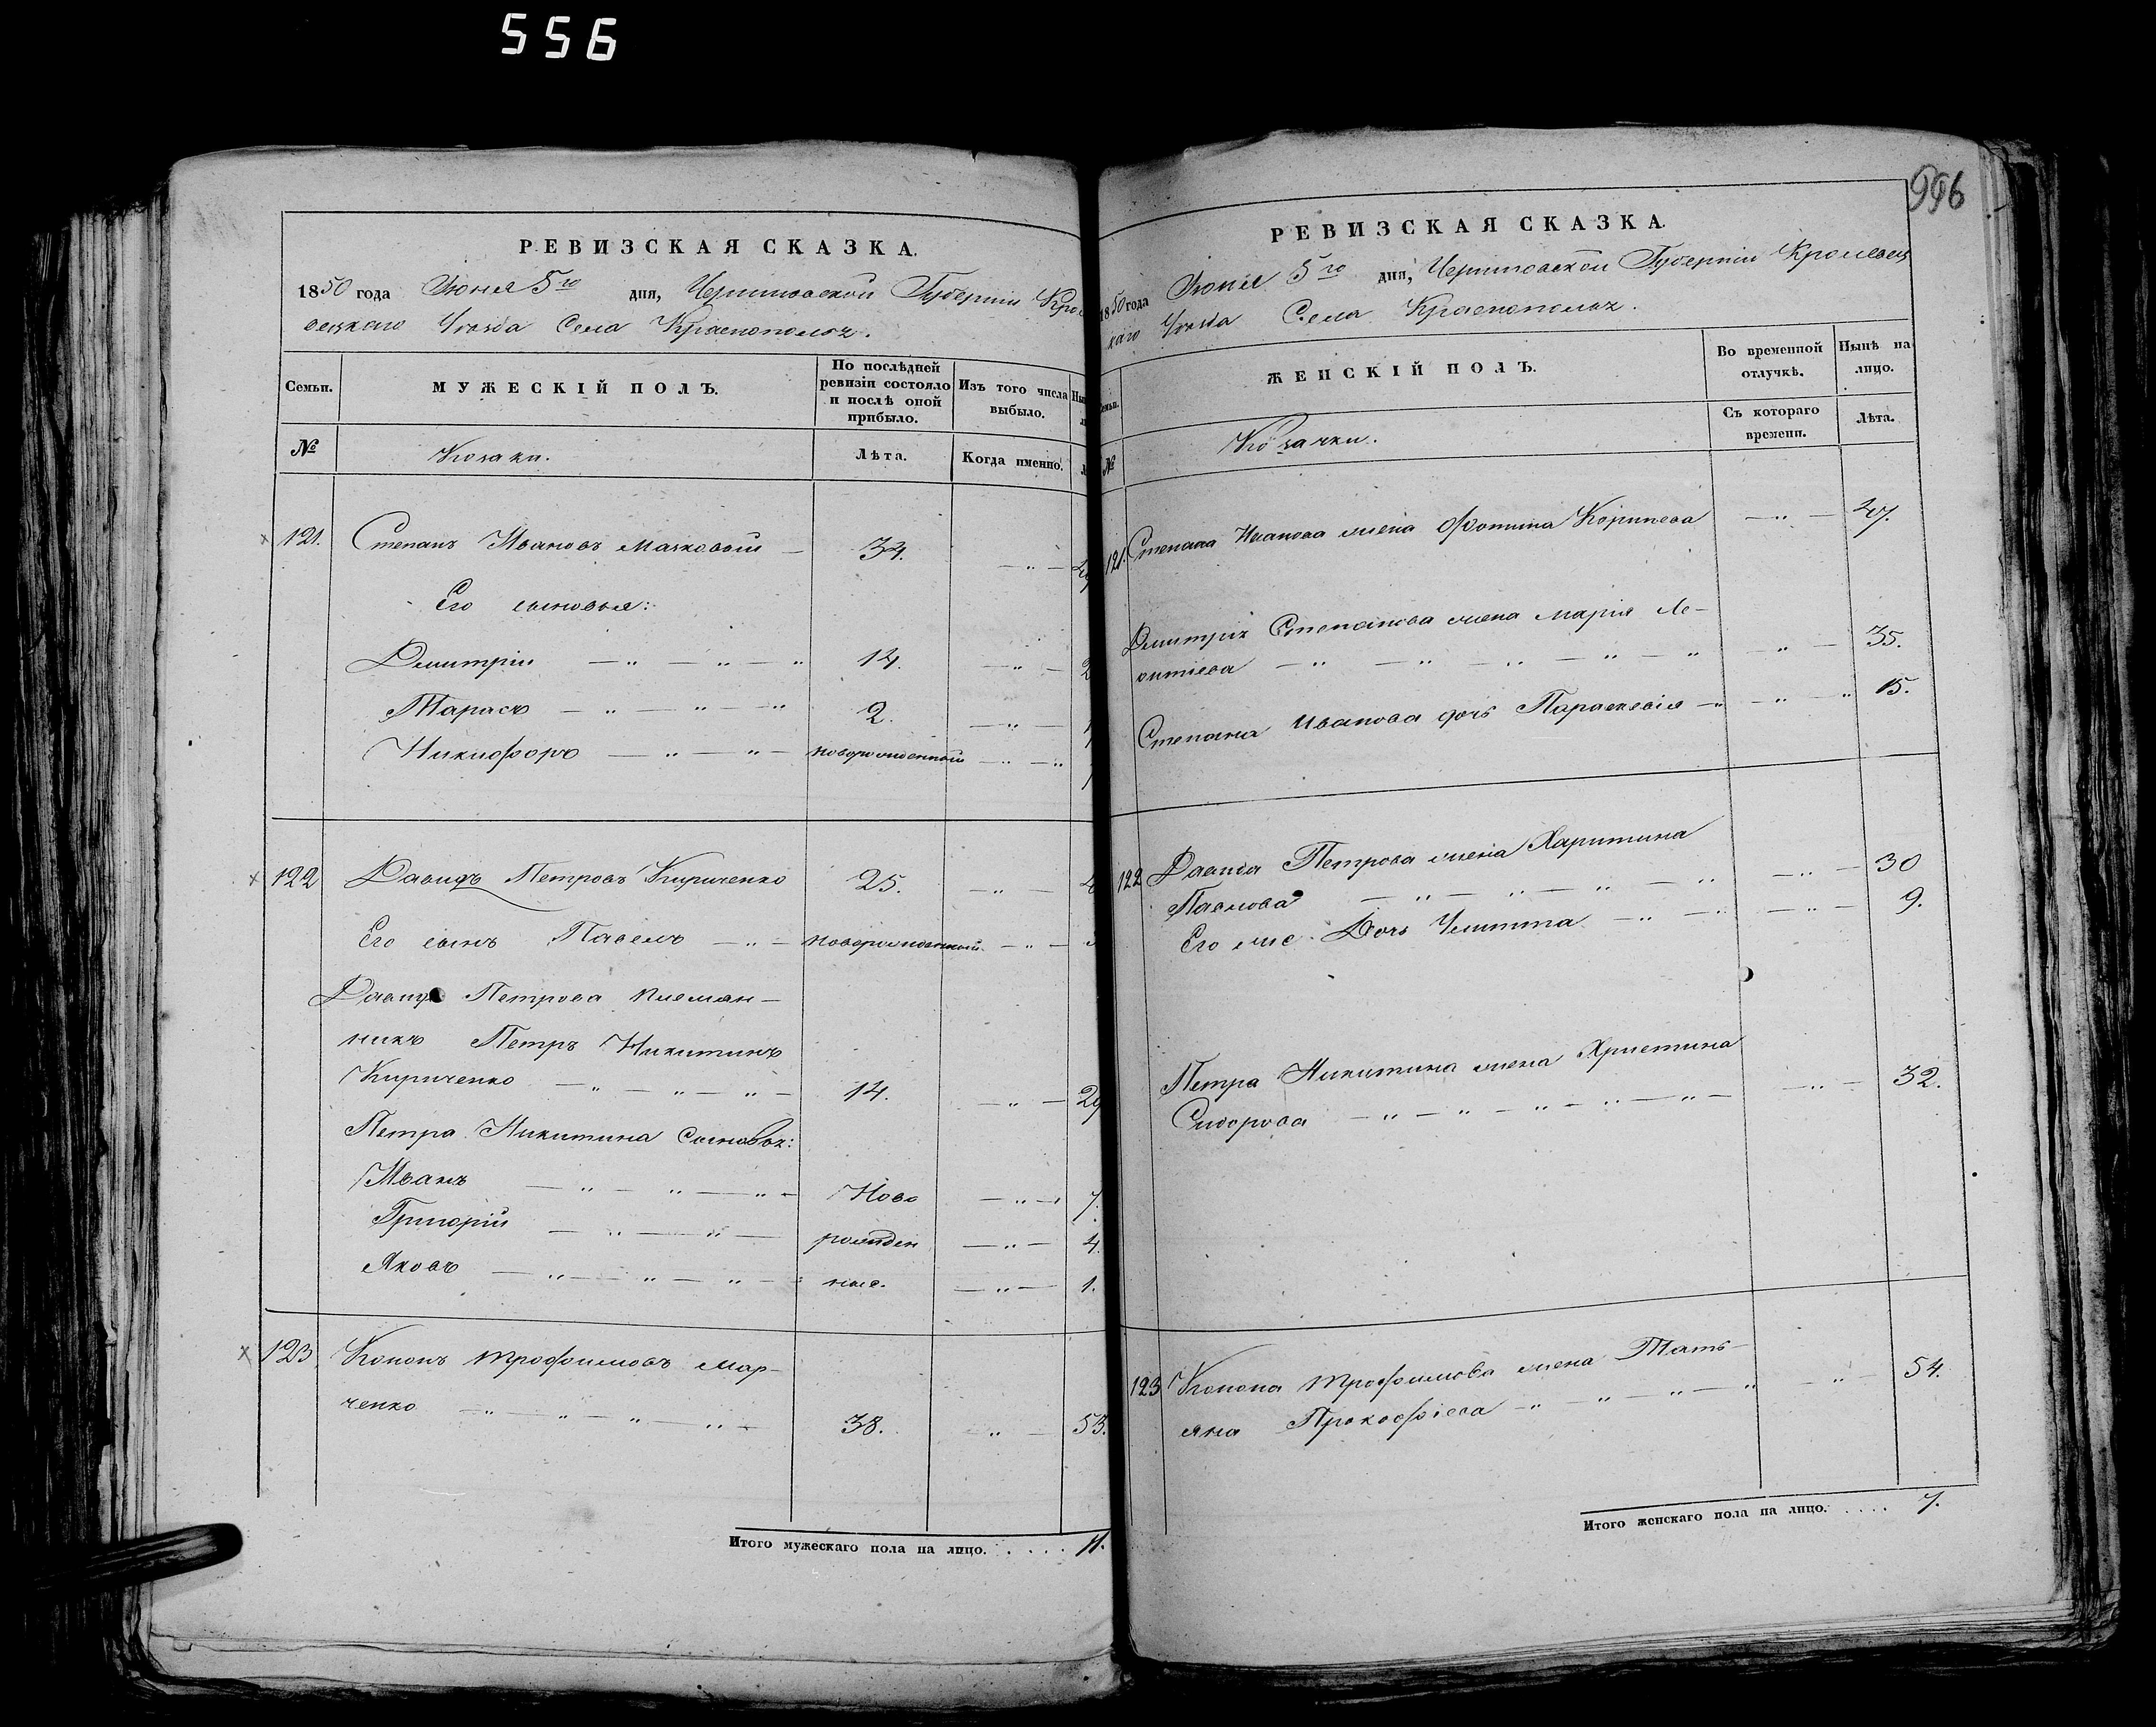 556
РЕВИЗСКАЯ СКАЗКА.
1850 года Іюня 5го дня, Черниговской Губерніи Кроле
вецкаго Уѣзда Села Краснополья.
Семьи.
МУЖЕСКІЙ ПОЛЪ.
По послѣдней ревизіи состояло и послѣ оной прибыло.
Изъ того числа выбыло.
№
Козаки.
Лѣта.
Когда именно.
121. Степанъ Ивановъ Мачковый — 34. — „ —
Его сыновья:
Дмитрій — „ — „ — „ 14. — „ —
Тарасъ — „ — „ — „ 2. — „ —
Никифоръ — „ — „ — новорожденный — „ — „
122 Давидъ Петровъ Кириченко 25. — „ —
Его сынъ Павелъ — „ — новорожденный — „ —
Давида Петрова племян-
никъ Петръ Никитинъ
Кириченко — „ — „ — „ — 14. — „ — 29
Петра Никитина Сыновья:
Иванъ — „ — „ — „ — Ново — „ — 7.
Григорій — „ — „ — рожден — „ — 4.
Яковъ — „ — „ — „ — ные. — „ — 1.
123 Кононъ Трофимовъ Мар-
ченко — „ — „ — „ — „ — 38. — „ — 53.
Итого мужескаго пола на лицо. . . . . 11.
996
РЕВИЗСКАЯ СКАЗКА.
1850 года Іюня 5го дня, Черниговской Губерніи Кролевец
каго Уѣзда Села Краснополья.
Семьи.
ЖЕНСКІЙ ПОЛЪ.
Во временной отлучкѣ.
Нынѣ на лицо.
№
Козачки.
Съ котораго времени.
Лѣта.
121. Степана Иванова жена Фотина Корнѣева — „ — 47.
Дмитрія Степанова жена Марія Ле-
онтіева — „ — „ — „ — „ — „ — „ — 35.
Степана Иванова дочь Параскевія — „ — „ — „ 15.
122 Давида Петрова жена Харитина
Павлова — „ — „ — „ — „ — „ — 30
Его же Дочь Улитта — „ — „ — „ — 9.
Петра Никитина жена Христина
Сидорова — „ — „ — „ — „ — „ — — „ — 32.
123 Конона Трофимова жена Тать-
яна Прокофіева — „ — „ — „ — „ — „ — 54.
Итого женскаго пола на лицо. . . . . 7.